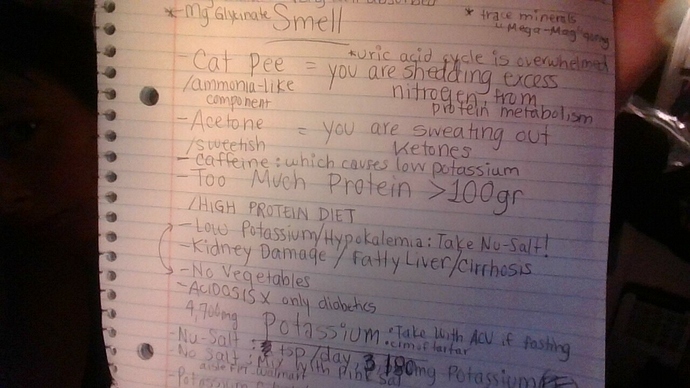 absorbed
*-Mg Glycinate Smell * trace minerals
"Mega-Mag"
*uric acid cycle is overwhelmed
-Cat Pee = you are shedding excess
/ammonia-like nitrogen from
component protein metabolism
-Acetone = you are sweating out
/sweetish ketones
-caffeine: which causes low potassium
-Too Much Protein >100gr
/HIGH PROTEIN DIET
-Low Potassium/Hypokalemia: Take Nu-Salt!
-Kidney Damage / Fatty Liver/Cirrhosis
-No Vegetables
-ACIDOSIS X only diabetics
4,700mg Potassium *Take With ACV if fasting
-Nu-Salt: tsp/day, mg Potassium
No Salt: Pink Sal
-Potassium